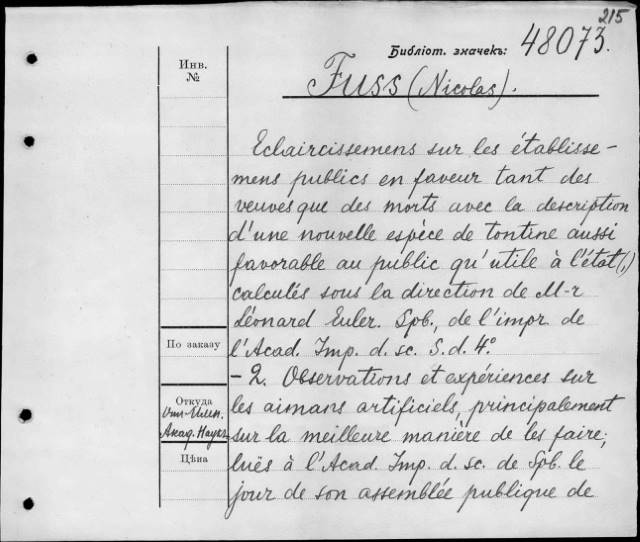 215
Библіот. значекъ: 48073.
Инв.
№
Fuss (Nicolas).
Eclaircissemens sur les établisse-
mens publics en faveur tant des
veuves que des morts avec la description
d'une nouvelle espèce de tontine aussi
favorable au public qu'utile à l'état(,)
calculés sous la direction de M-r
Léonard Euler. Spb., de l'impr de
l'Acad. Imp. d. sc. S. d. 4°.
- 2. Observations et expériences sur
les aimans artificiels, principalement
sur la meilleure manière de les faire;
luës à l'Acad. Imp. d. sc. de Spb. le
jour de son assemblée publique de
По заказу
Откуда
Акад. Наукъ
Цѣна